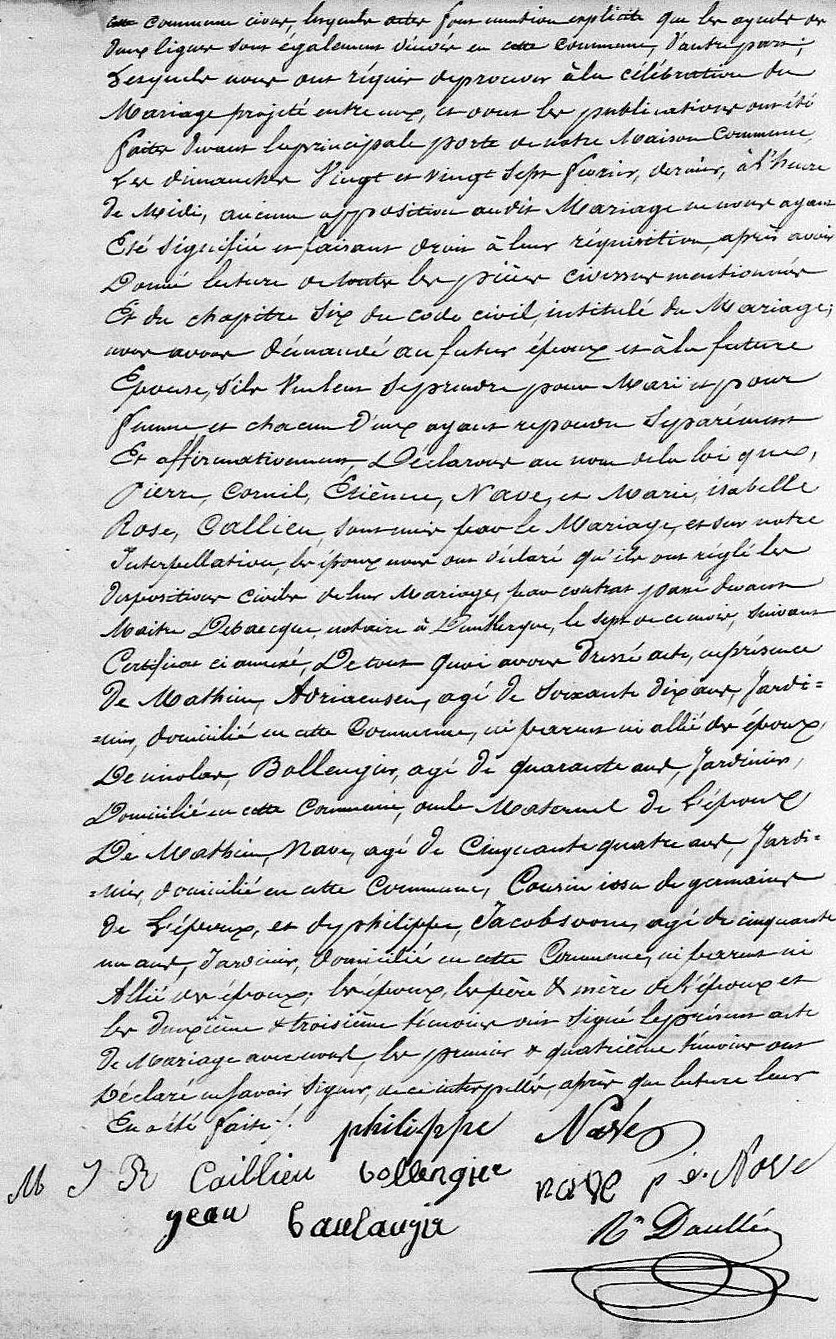 commune civar, lesquels actes font mention explicite que les ayeuls des
deux lignes sont également décédés en cette commune, d'autre part;
Lesquels nous ont réquis de procéder à la célébration du
Mariage projeté entre eux, et dont les publications ont été
faites devant la principale porte de notre Maison Commune,
Les dimanches Vingt et vingt Sept février, dernier, à l'heure
de Midi, aucune opposition audit Mariage ne nous ayant
Eté Signifiée et faisant droit à leur réquisition, après avoir
Donné lecture de toutes les pièces mentionnées
Et du chapitre Six du code civil, intitulé du Mariage,
nous avons demandé au futur époux et à la future
Epouse, S'ils Veulent Se prendre pour Mari et pour
femme et chacun d'eux ayant repondu Séparément
Et affirmativement, Déclarons au nom de la loi que,
Pierre, Corneil, Etiènne, Nave, et Marie, isabelle
Rose, Callieu, sont unis par le Mariage, et sur notre
Interpellation, les époux nous ont déclaré qu'ils ont réglé les
dispositions civiles de leur Mariage, par contrat passé devant
Maitre Debaecque, notaire à Dunkerque, le sept de ce mois, suivant
Certificat ci annexé, De tout quoi avons dressé acte, en présence
De Mathieu, Adriaensen, agé de Soixante dix ans, Jardi=
=nier, domicilié en cette Commune, ni parent ni allié des époux,
De nicolas, Bollengier, agé de quarante ans, Jardinier,
Domicilié en cette Commune, oncle Maternel de L'époux
De Mathieu, Nave, agé de Cinquante quatre ans, Jardi=
=nier, domicilié en cette Commune, Cousin issu de germains
de L'époux, et de philippe, Jacobsoone, agé de cinquante
un ans, Jardinier, domicilié en cette Commune, ni parent ni
Allié des époux; les époux, les père & mère de l'époux et
les deuxième & troisième témoins ont Signé le présent acte
de Mariage avec nous, les premier & quatrième témoins ont
Déclaré ne Savoir Signer, de ce interpellés, après que lecture leur
En a été faite ./.
philippe Nave
M I R Caillieu bollengier nave p é. Nave
jean baulangier
Daullé